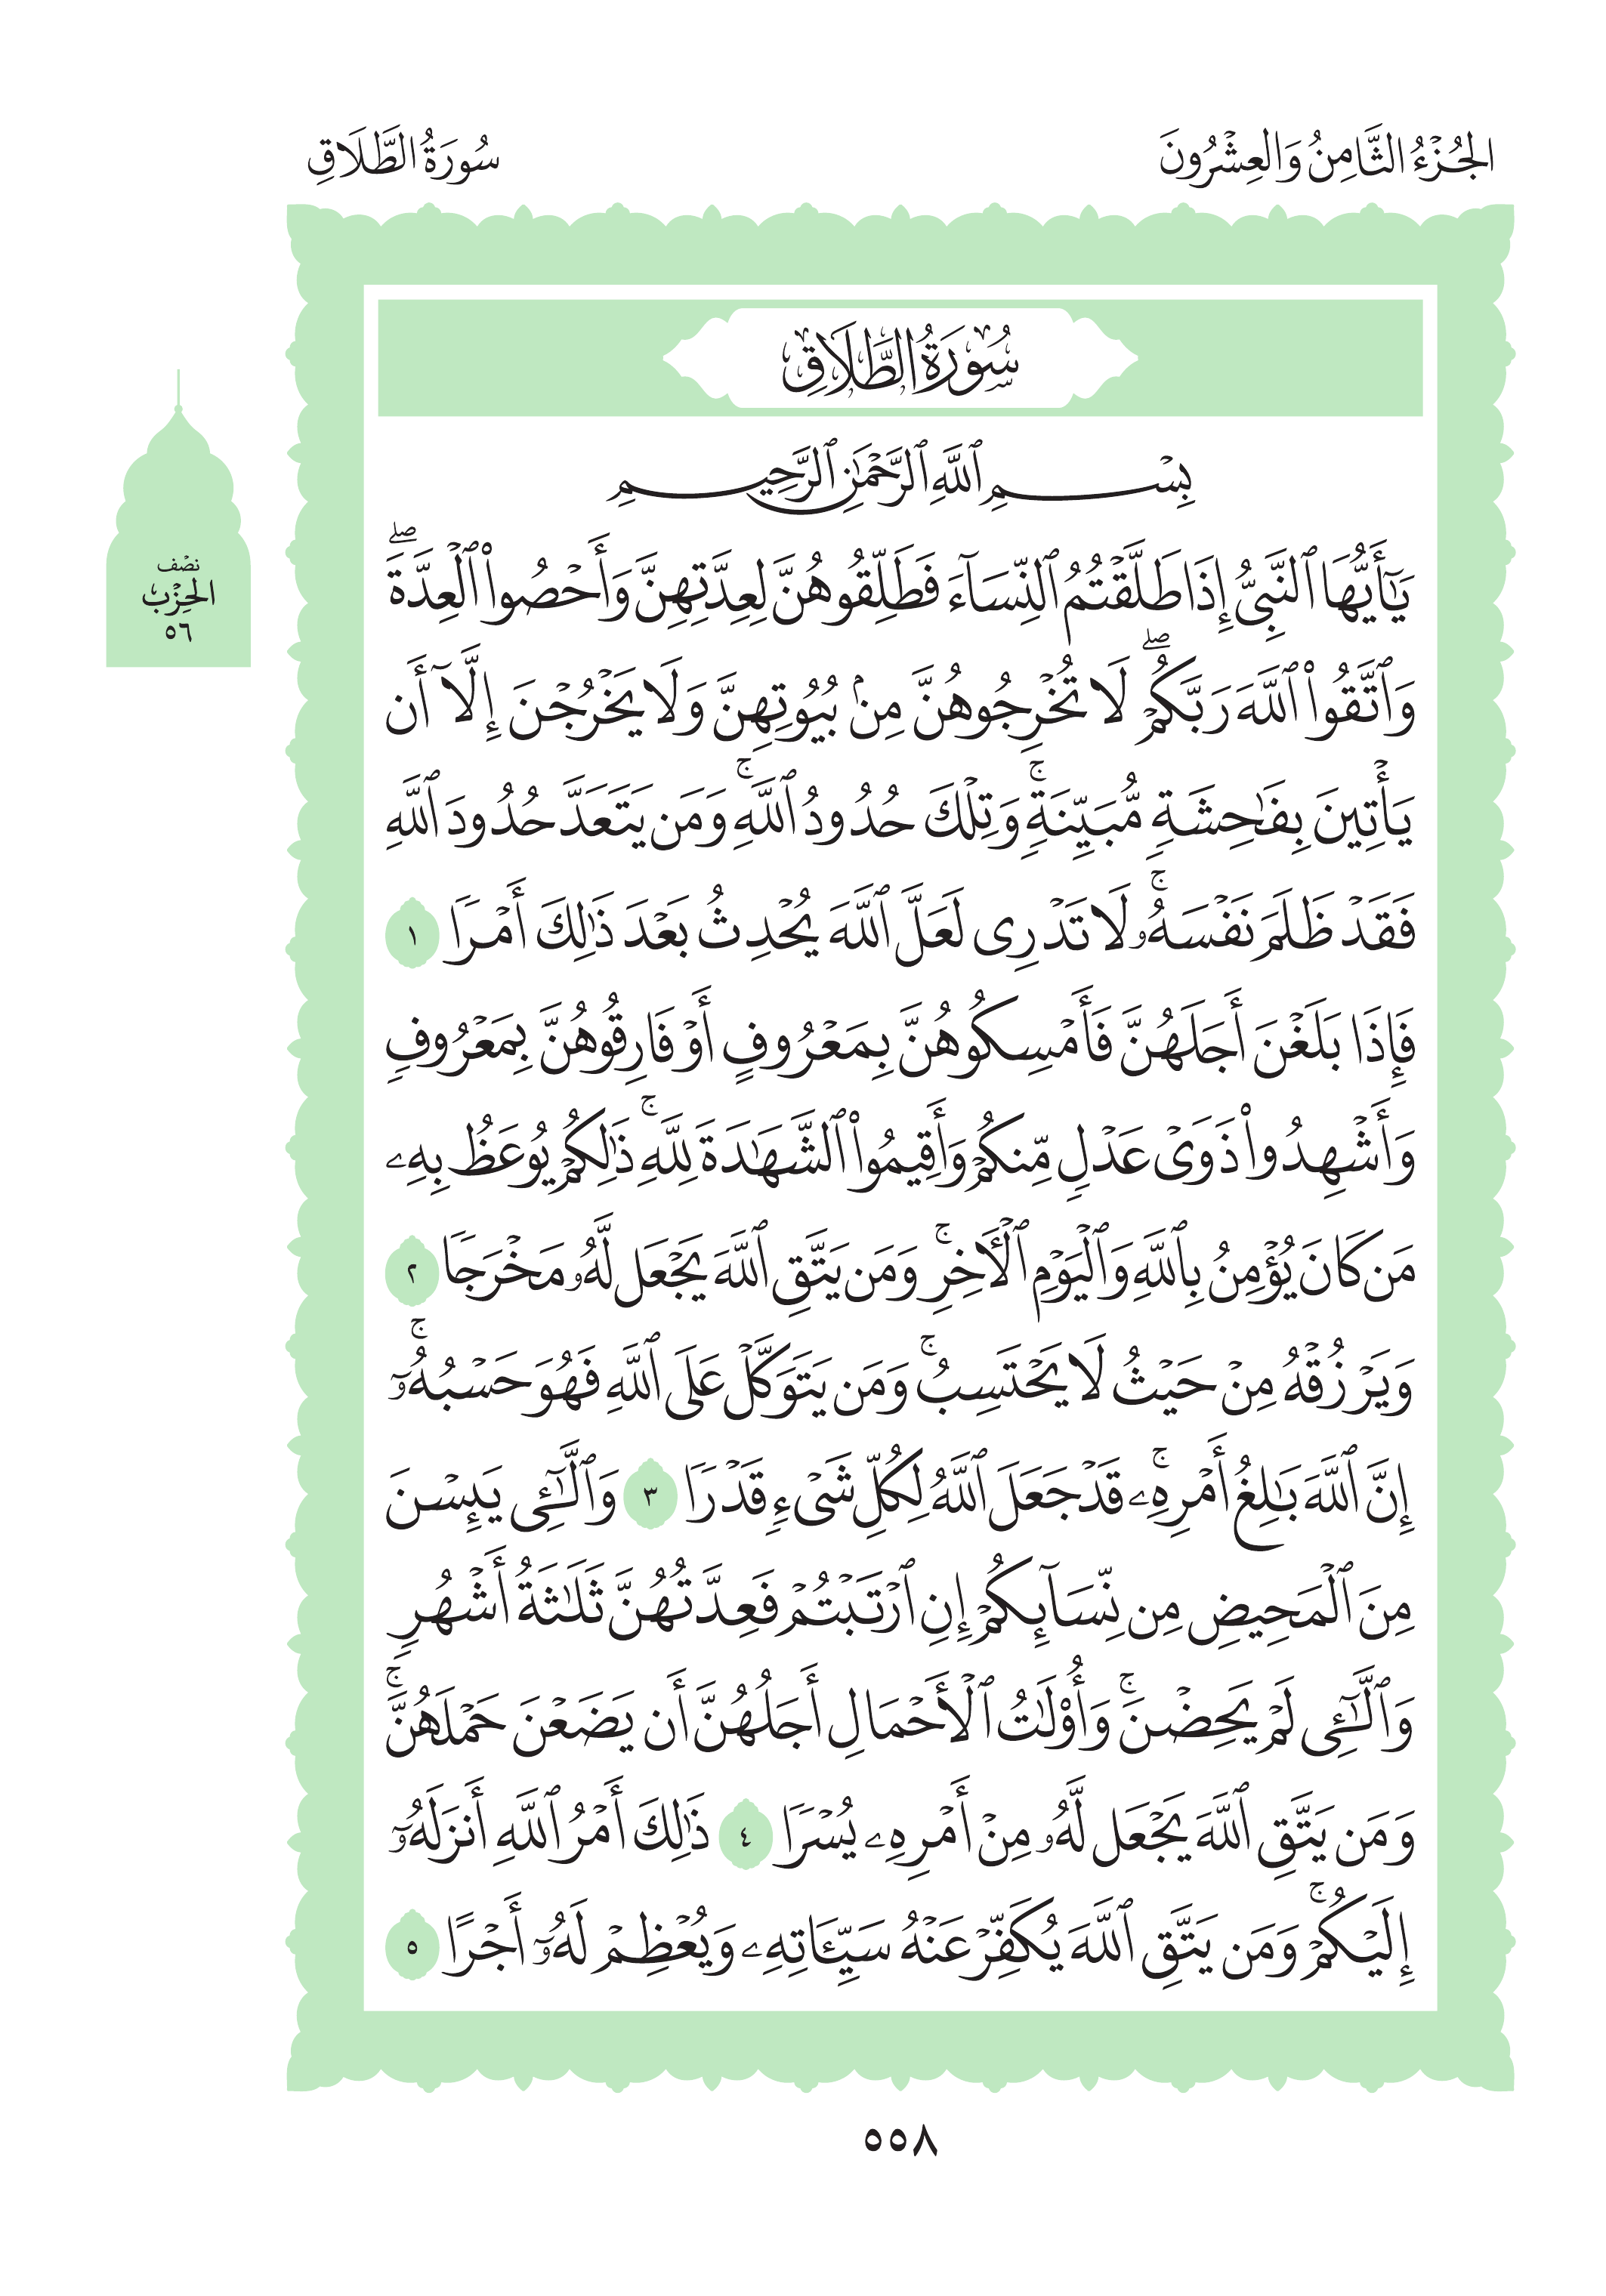 الجُزْءُ الثَّامِنُ وَالعِشْرُونَ
سُورَةُ الطَّلَاقِ
سُورَةُ الطَّلَاقِ
نصف
الحِزْب
٥٦
بِسْمِ ٱللَّهِ ٱلرَّحْمَٰنِ ٱلرَّحِيمِ
يَٰٓأَيُّهَا ٱلنَّبِيُّ إِذَا طَلَّقْتُمُ ٱلنِّسَآءَ فَطَلِّقُوهُنَّ لِعِدَّتِهِنَّ وَأَحْصُوا۟ ٱلْعِدَّةَۖ
وَٱتَّقُوا۟ ٱللَّهَ رَبَّكُمْۖ لَا تُخْرِجُوهُنَّ مِنۢ بُيُوتِهِنَّ وَلَا يَخْرُجْنَ إِلَّآ أَن
يَأْتِينَ بِفَٰحِشَةٍ مُّبَيِّنَةٍۚ وَتِلْكَ حُدُودُ ٱللَّهِۚ وَمَن يَتَعَدَّ حُدُودَ ٱللَّهِ
فَقَدْ ظَلَمَ نَفْسَهُۥۚ لَا تَدْرِى لَعَلَّ ٱللَّهَ يُحْدِثُ بَعْدَ ذَٰلِكَ أَمْرًا ١
فَإِذَا بَلَغْنَ أَجَلَهُنَّ فَأَمْسِكُوهُنَّ بِمَعْرُوفٍ أَوْ فَارِقُوهُنَّ بِمَعْرُوفٍ
وَأَشْهِدُوا۟ ذَوَىْ عَدْلٍ مِّنكُمْ وَأَقِيمُوا۟ ٱلشَّهَٰدَةَ لِلَّهِۚ ذَٰلِكُمْ يُوعَظُ بِهِۦ
مَن كَانَ يُؤْمِنُ بِٱللَّهِ وَٱلْيَوْمِ ٱلْءَاخِرِۚ وَمَن يَتَّقِ ٱللَّهَ يَجْعَل لَّهُۥ مَخْرَجًا ٢
وَيَرْزُقْهُ مِنْ حَيْثُ لَا يَحْتَسِبُۚ وَمَن يَتَوَكَّلْ عَلَى ٱللَّهِ فَهُوَ حَسْبُهُۥٓۚ
إِنَّ ٱللَّهَ بَٰلِغُ أَمْرِهِۦۚ قَدْ جَعَلَ ٱللَّهُ لِكُلِّ شَىْءٍ قَدْرًا ٣ وَٱلَّٰٓـِٔى يَئِسْنَ
مِنَ ٱلْمَحِيضِ مِن نِّسَآئِكُمْ إِنِ ٱرْتَبْتُمْ فَعِدَّتُهُنَّ ثَلَٰثَةُ أَشْهُرٍ
وَٱلَّٰٓـِٔى لَمْ يَحِضْنَۚ وَأُو۟لَٰتُ ٱلْأَحْمَالِ أَجَلُهُنَّ أَن يَضَعْنَ حَمْلَهُنَّۚ
وَمَن يَتَّقِ ٱللَّهَ يَجْعَل لَّهُۥ مِنْ أَمْرِهِۦ يُسْرًا ٤ ذَٰلِكَ أَمْرُ ٱللَّهِ أَنزَلَهُۥٓ
إِلَيْكُمْۚ وَمَن يَتَّقِ ٱللَّهَ يُكَفِّرْ عَنْهُ سَيِّـَٔاتِهِۦ وَيُعْظِمْ لَهُۥٓ أَجْرًا ٥
٥٥٨